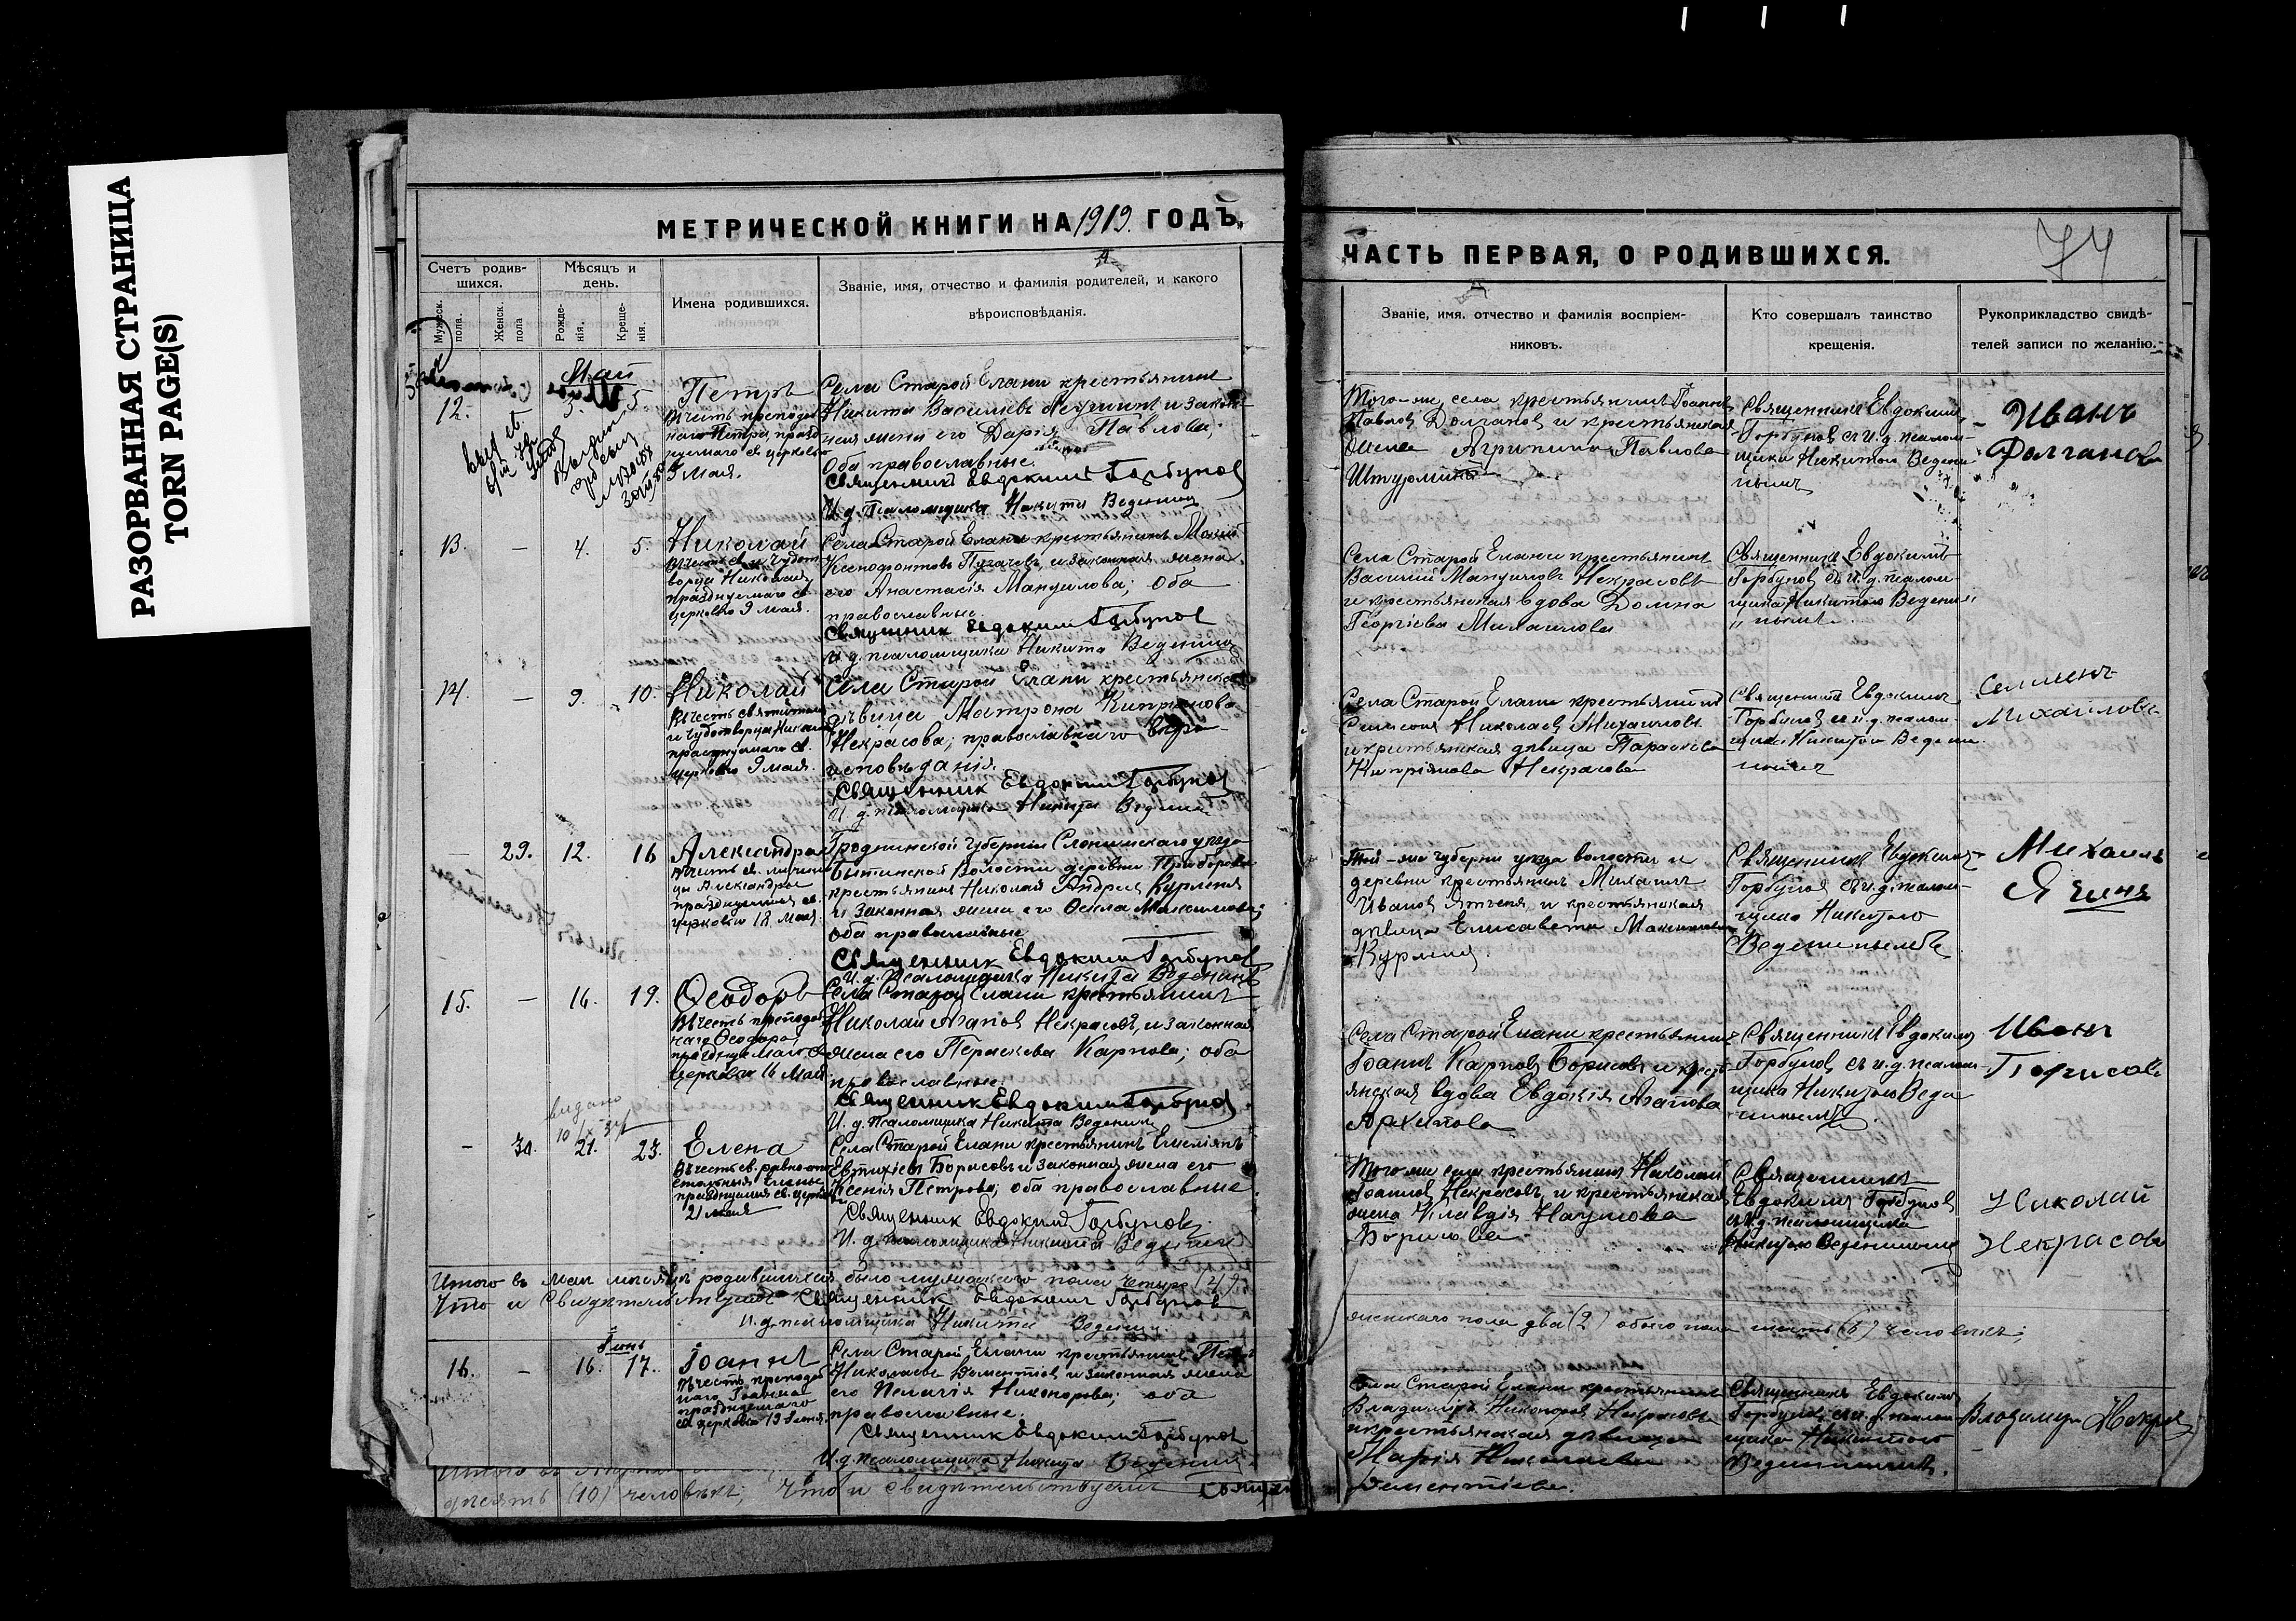 РАЗОРВАННАЯ СТРАНИЦА
TORN PAGE(S)
МЕТРИЧЕСКОЙ КНИГИ НА 1919 ГОДЪ,
Счетъ родив-
шихся.
Мужеск. пола.
Женск. пола
Мѣсяцъ и
день.
Рожде-
нія.
Креще-
нія.
Имена родившихся.
Званіе, имя, отчество и фамилія родителей, и какого
вѣроисповѣданія.
Май
12.
3.
5.
Петръ
Въ честь преподоб
наго Петра, празд
нуемаго св. церковью
Мая.
Села Старой Елани крестьянинъ
Никита Васильевъ и закон
ная жена его Дарія Павлова;
Оба православные.
Священникъ Евдокимъ Горбуновъ
И. д. Псаломщика Никита Веденинъ
13.
—
4.
5.
Николай
Въ честь св. и Чудот
ворца Николая
празднуемаго св.
церковью 9 мая.
Села Старой Елани крестьянинъ
Ксенофонтовъ Пугачевъ, и законная жена
его Анастасія Мануилова; оба
православные.
Священникъ Евдокимъ Горбуновъ
И. д. псаломщика Никита Веденинъ
14.
—
9.
10.
Николай
Въ честь святителя
и Чудотворца Николая
празднуемаго св.
церковью 9 мая.
Села Старой Елани крестьянская
дѣвица Матрона Кипріянова
Некрасова; православнаго вѣро-
исповѣданія.
Священникъ Евдокимъ Горбуновъ
И. д. псаломщика Никита Веденинъ
—
29.
12.
16
Александра
Въ честь св. мучени
цы Александры
празднуемыя св.
церковью 18 мая.
Гродненской губерніи Слонимскаго уѣзда
Бытинской Волости деревни
крестьянинъ Николай Андреевъ Курленя
и законная жена его Максимова;
Оба православные
Священникъ Евдокимъ Горбуновъ
И. д. Псаломщика Никита Веденинъ
15.
—
16.
19.
Ѳеодоръ
Въ честь преподоб
наго Ѳеодора,
празднуемаго св.
церковью 16 Мая.
Села Старой Елани крестьянинъ
Николай Агаповъ Некрасовъ, и законная
жена его Параскева Карпова; оба
православные.
Священникъ Евдокимъ Горбуновъ
И. д. Псаломщика Никита Веденинъ
выдано
—
30.
21.
23.
Елена
Въ честь св. равноапо
стольныя Елены
празднуемыя св. церковью
21 мая
Села Старой Елани крестьянинъ Емеліянъ
Евтихіевъ Борисовъ и законная жена его
Ксенія Петрова; оба православные
Священникъ Евдокимъ Горбуновъ.
И. д. псаломщика Никита Веденинъ
Итого въ мая мѣсяцѣ родившихся было мужескаго пола четыре (4),
Что и свидѣтельствуемъ Священникъ Евдокимъ Горбуновъ
И. д. псаломщика Никита Веденинъ.
Іюнь
16.
—
16.
17.
Іоаннъ
Въ честь преподоб
наго Іоанна
празднуемаго
св. церковью 19 Іюня.
Села Старой Елани крестьянинъ
Николаевъ Дементіевъ и законная жена
его Пелагія Никонорова; оба
православные.
Священникъ Евдокимъ Горбуновъ
И. д. псаломщика Никита Веденинъ
десять (10) человѣкъ; Что и свидѣтельствуемъ
ЧАСТЬ ПЕРВАЯ, О РОДИВШИХСЯ.
74
Званіе, имя. отчество и фамилія воспріем-
никовъ.
Кто совершалъ таинство
крещенія.
Рукоприкладство свидѣ-
телей записи по желанію.
Того-же села крестьянинъ Іоаннъ
Павловъ Долгановъ и крестьянская
жена Агрипина Павлова
Штурмина
Священникъ Евдокимъ
Горбуновъ съ и. д. псалом-
щика Никитою Ведени
нымъ
Иванъ
Долгановъ
Села Старой Елани крестьянинъ
Василій Мануиловъ Некрасовъ
и крестьянская вдова Домна
Георгіева Михаилова
Священникъ Евдокимъ
Горбуновъ съ И. д. псалом
щика Никитою Ведени
нымъ.
Села Старой Елани крестьянинъ
Симеонъ Николаевъ Михаиловъ
и крестьянская дѣвица Параскева
Кипріянова Некрасова
Священникъ Евдокимъ
Горбуновъ съ и. д. псалом-
щика Никитою Ведени
нымъ
Семенъ
Михайловъ
Той-же губерніи уѣзда волости и
деревни крестьянинъ Михаилъ
Ивановъ и крестьянская
дѣвица Елисавета Максимова
Курленя.
Священникъ Евдокимъ
Горбуновъ съ и. д. псалом-
щика Никитою
Веденинымъ
Михаилъ
Села Старой Елани крестьянинъ
Іоаннъ Карповъ Борисовъ и кресть
янская вдова Евдокія Агапова
Архипова
Священникъ Евдокимъ
Горбуновъ съ и. д. псалом-
щика Никитою Веде
нинымъ
Иванъ
Борисовъ
Того-же села крестьянинъ Николай
Іоанновъ Некрасовъ, и крестьянская
жена Клавдія Наумова
Борисова
Священникъ
Евдокимъ Горбуновъ
съ И. д. псаломщика
Никитою Веденинымъ
Николай
Некрасовъ
женскаго пола два (2) обоего пола шесть (6) человѣкъ;
Села Старой Елани крестьянинъ
Владиміръ Никоноровъ Некрасовъ
и крестьянская дѣвица
Марія Николаева
Дементіева.
Священникъ Евдокимъ
Горбуновъ съ и. д. псалом
щика Никитою
Веденинымъ.
Владимиръ Некра